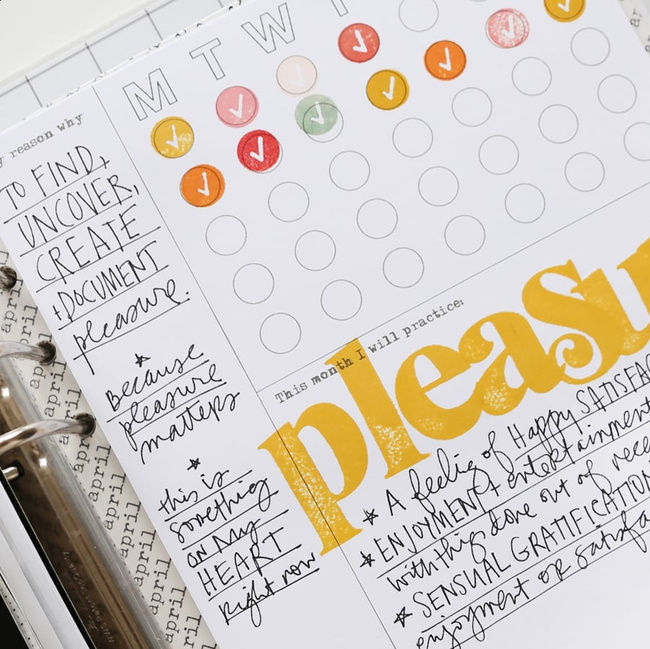 M T W T
y reason why
TO FIND,
UNCOVER,
CREATE
+ DOCUMENT
pleasure.
because
pleasure
matters
this is
something
on my
HEART
right now
This month I will practice:
pleasu
★ A feeling of Happy SATISFAC
★ ENJOYMENT + entertainment
with thing done out of
★ SENSUAL GRATIFICATION
enjoyment or satisfa
april
april
april
april
april
april
april
april
april
april
april
april